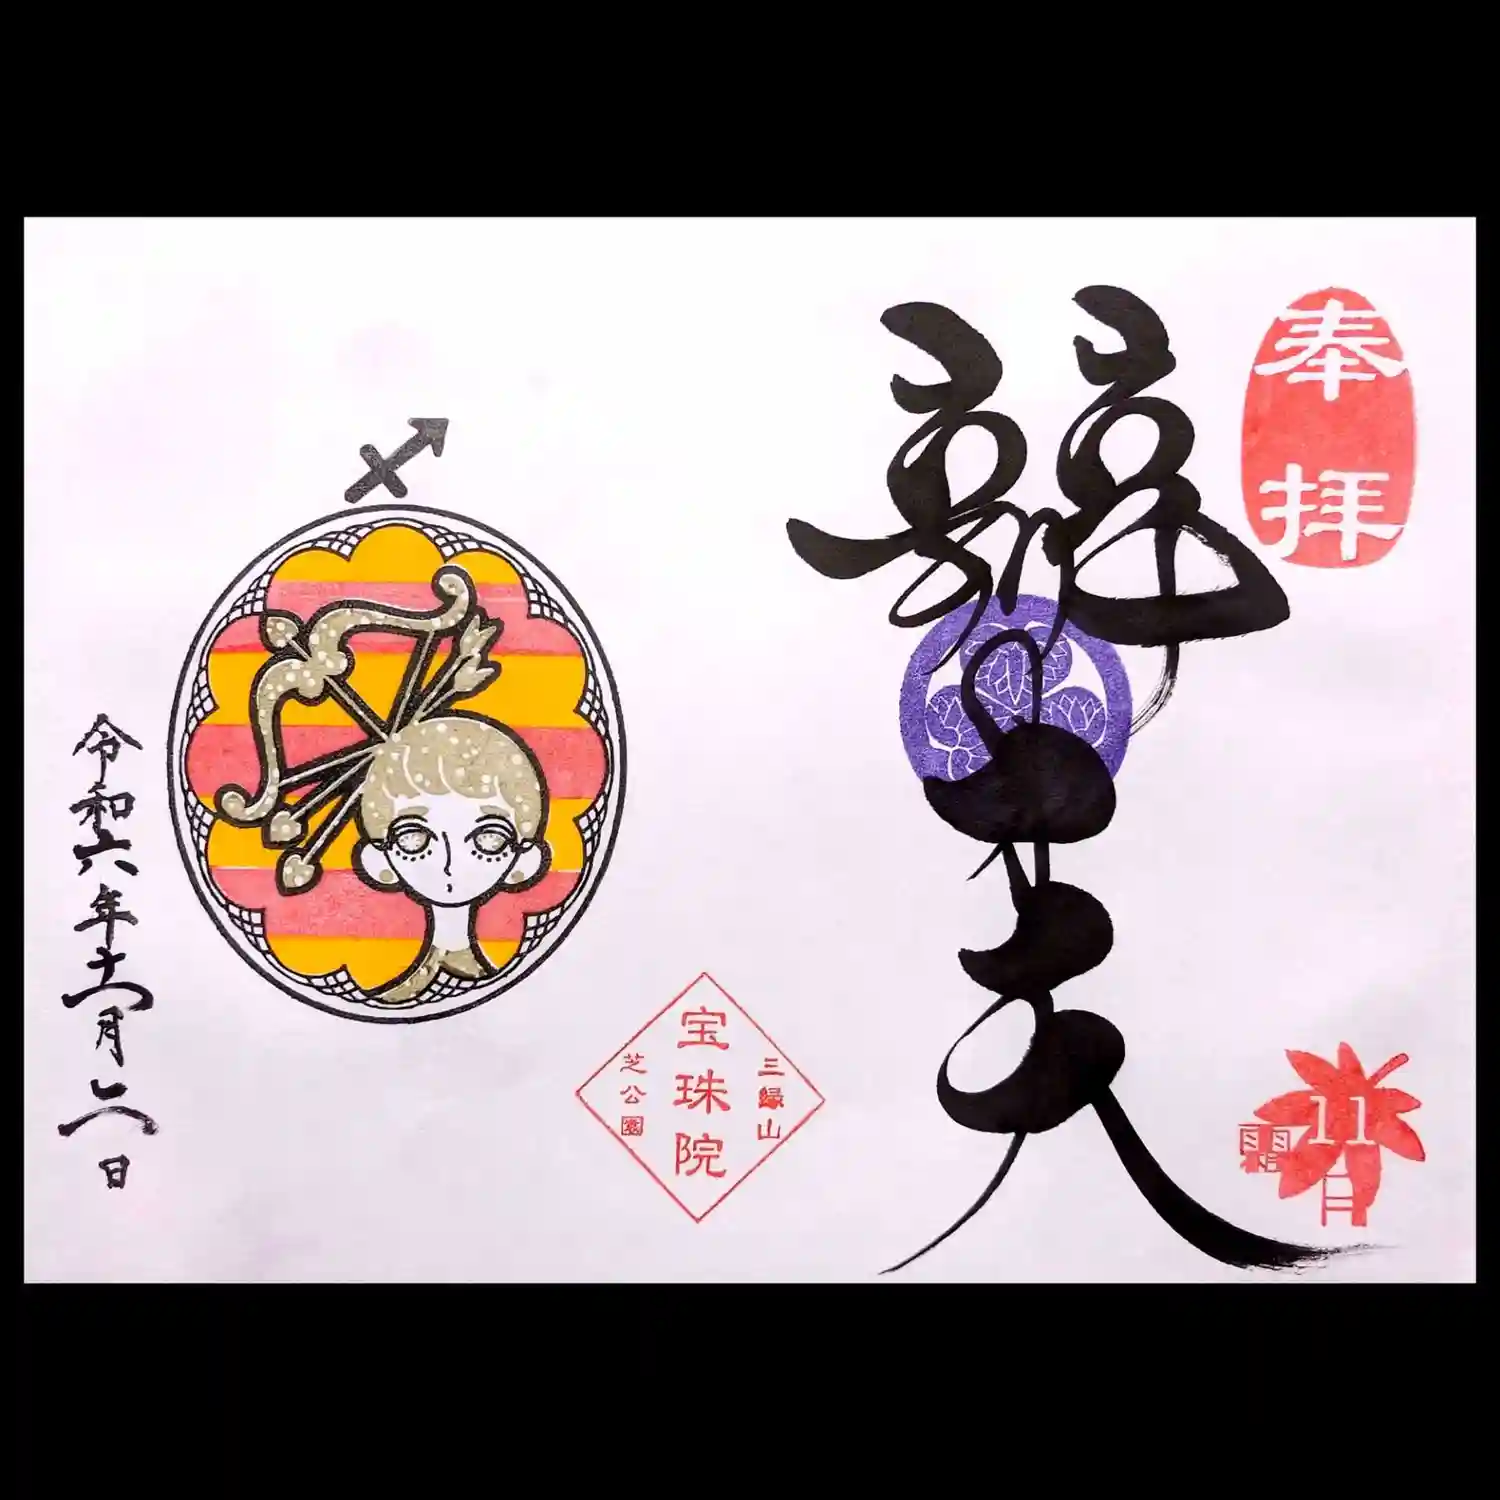 奉拝
辨才天
11月
霜
三縁山
宝珠院
芝公園
令和六年十一月二日